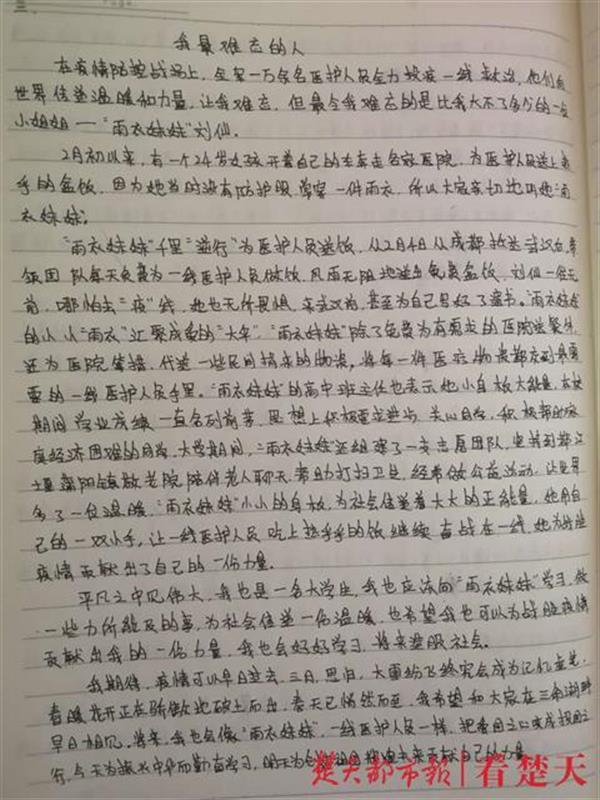 我最难忘的人
在疫情防控战场上,全军一万余名医护人员全力投疫一线救治,他们向
世界传递温暖和力量,让我难忘,但最令我难忘的是比我大不了多少的一位
小姐姐——“雨衣妹妹”刘仙。
2月初以来,有一个24岁女孩开着自己的车奔走各家医院,为医护人员送上热
乎的盒饭,因为她当时没有防护服,常穿一件雨衣,所以大家亲切地叫她“雨
衣妹妹”。
“雨衣妹妹”千里“逆行”为医护人员送饭,从2月4日从成都抵达武汉后,带
领团队每天免费为一线医护人员做饭,风雨无阻地送出免费盒饭,刘仙一往无
前,哪怕去“疫”线,她也无所畏惧,来武汉前,甚至为自己写好了遗书。“雨衣妹妹
的小小“雨衣”汇聚成爱的“大伞”,“雨衣妹妹”除了免费为有需求的医院送餐外,
还为医院筹措、代送一些民间捐来的物资,将每一件医疗物资都交到最需
要的一线医护人员手里。“雨衣妹妹”的高中班主任也表示她小身板大能量,在校
期间学业成绩一直名列前茅,思想上积极要求进步,关心同学,积极帮助家
庭经济困难的同学,大学期间,“雨衣妹妹”还组建了一支志愿团队,坐转到都江
堰 阳镇敬老院陪伴老人聊天,帮助打扫卫生,经常做公益活动,让世界
多了一份温暖,“雨衣妹妹”小小的身板,为社会传递着大大的正能量,她用自
己的一双小手,让一线医护人员吃上热乎乎的饭继续奋战在一线,她为抗击
疫情贡献出了自己的一份力量。
平凡之中见伟大,我也是一名大学生,我也应该向“雨衣妹妹”学习,做
一些力所能及的事,为社会传递一份温暖,也希望我也可以为战胜疫情
贡献出我的一份力量,我也会好好学习,将来造服社会。
我期待,疫情可以早日过去,三月,思归,大雪纷飞终究会成为记忆 ,
春暖花开正在骄傲地破土而出,春天已悄然而至,我希望和大家在三角湖畔
早日相见,将来,我也会像“雨衣妹妹”,一线医护人员一样,把爱国之心变成报国之
行,今天为振兴中华而勤奋学习,明天为 祖国 未来贡献自己的力量。
楚天都市报|看楚天